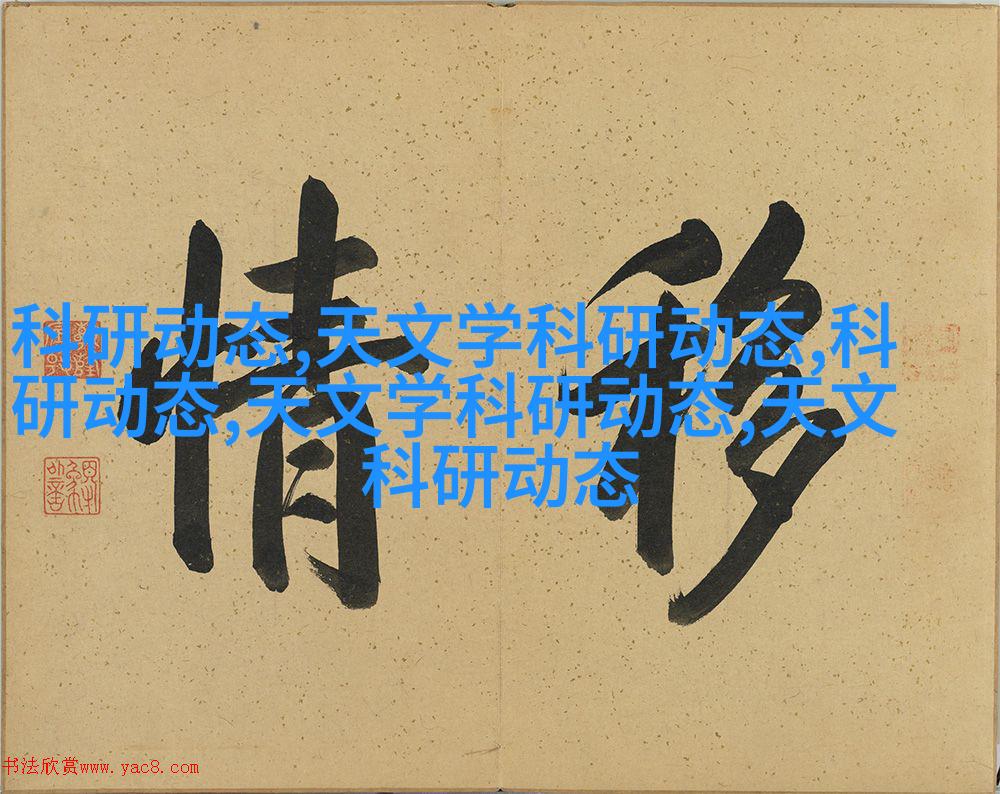 移情
科研动态,天文学科研动态,科
研动态,天文学科研动态,天文
科研动态
书法欣赏www.yac8.com